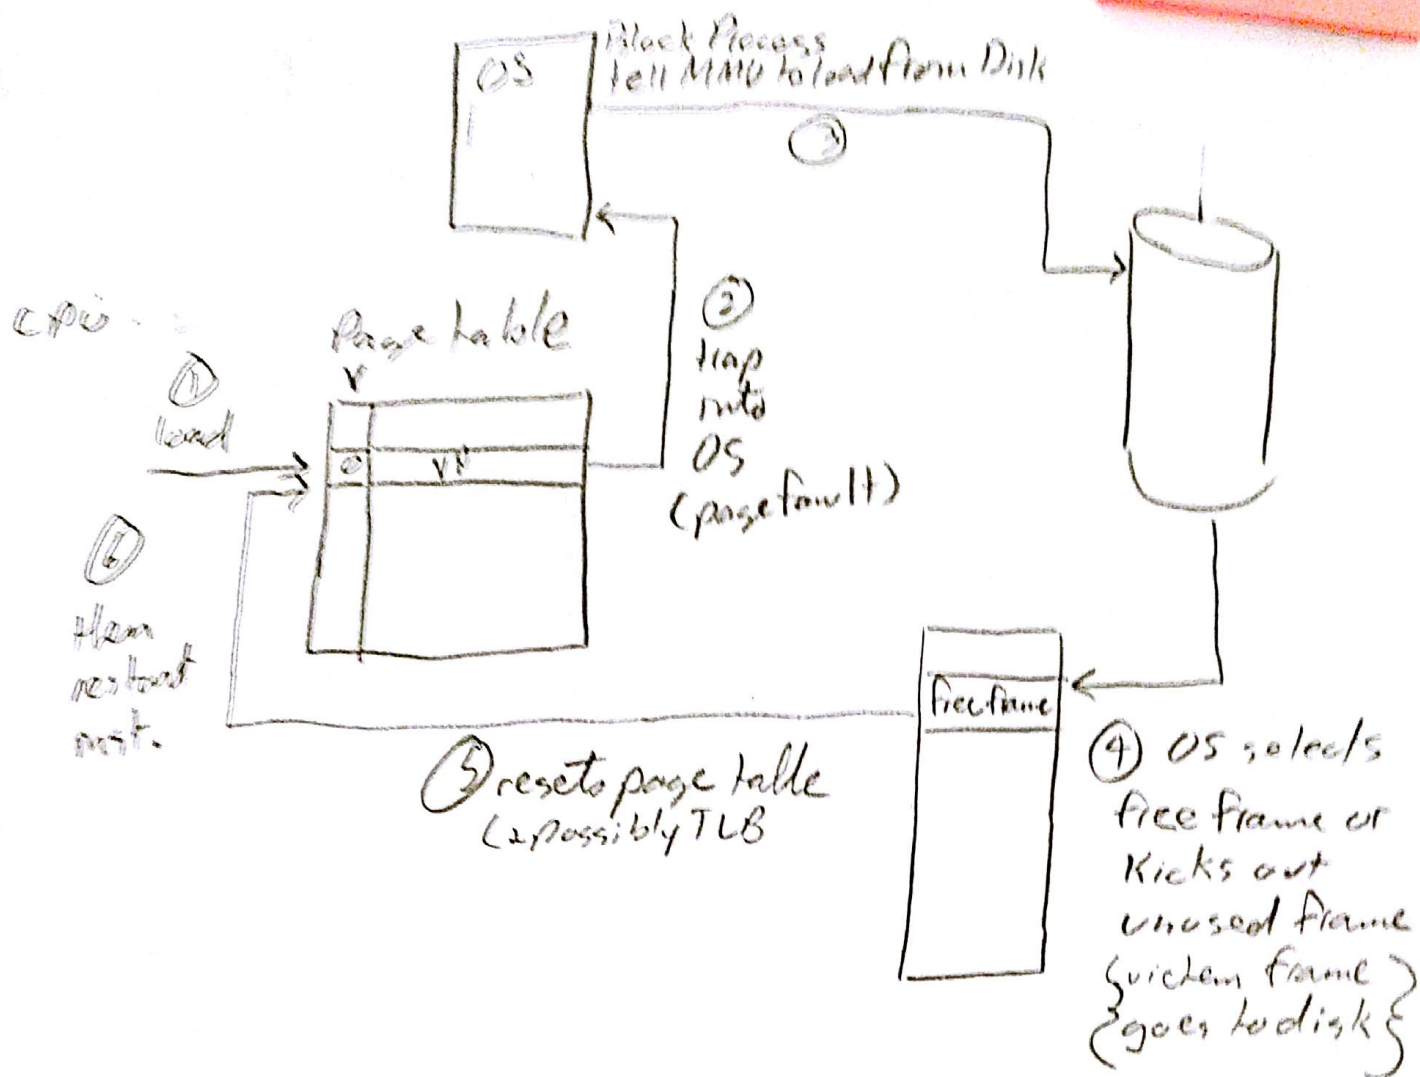 OS
Block Process
tell MMU to load from Disk
3
CPU
Page table
V
1
load
0
VP
2
trap
into
OS
(page fault)
6
then
restart
inst.
free frame
5 resets page table
(& possibly TLB
4 OS selects
free frame or
Kicks out
unused frame
{victem frame}
{goes to disk}